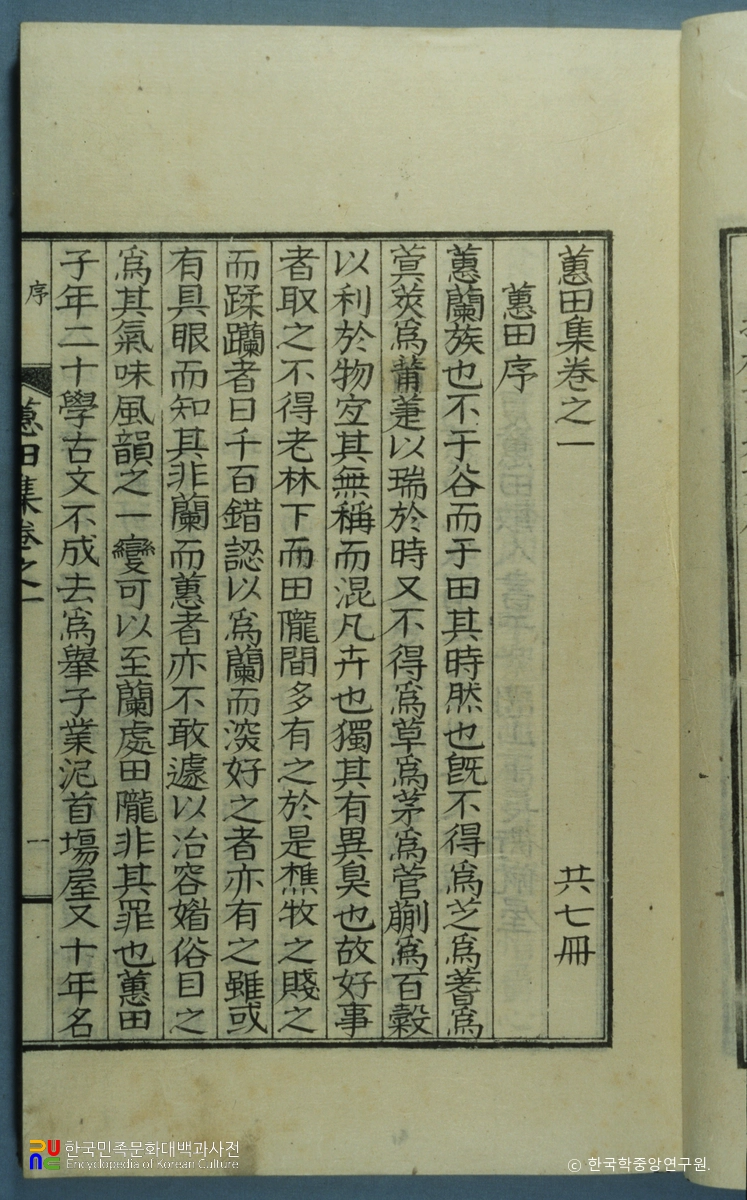 蕙田集卷之一 共七冊
蕙田序
蕙蘭族也不于谷而于田其時然也旣不得爲芝爲蓍爲
蓂莢爲莆萐以瑞於時又不得爲草爲茅爲菅蒯爲百穀
以利於物宐其無稱而混凡卉也獨其有異臭也故好事
者取之不得老林下而田隴間多有之於是樵牧之賤之
而蹂躪者日千百錯認以爲蘭而深好之者亦有之雖或
有具眼而知其非蘭而蕙者亦不敢遽以冶容媚俗目之
爲其氣味風韻之一變可以至蘭處田隴非其罪也蕙田
子年二十學古文不成去爲擧子業泥首塲屋又十年名
序
蕙田集卷之一
一
한국민족문화대백과사전
Encyclopedia of Korean Culture
© 한국학중앙연구원.